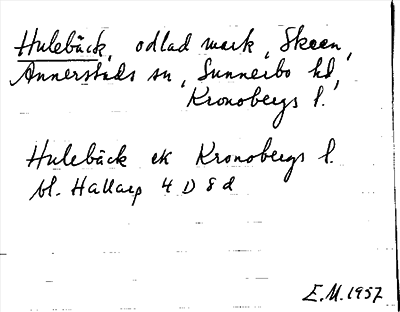 Hulebäck, odlad mark, Skeen,
Annerstads sn, Sunnerbo hd,
Kronobergs l.
Hulebäck ek Kronobergs l.
bl. Hallarp 4 D 8 d
E.M. 1957